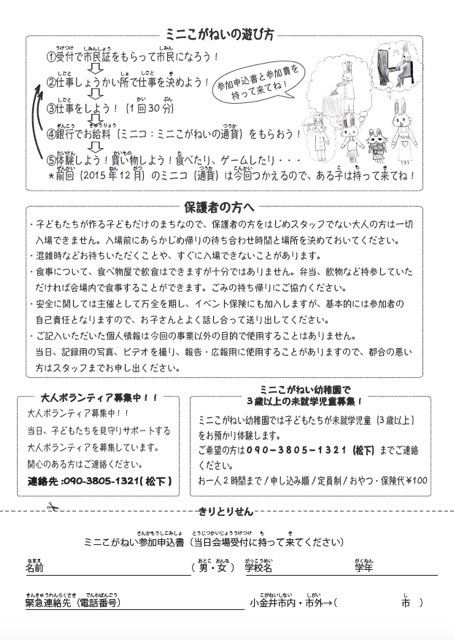 ミニこがねいの遊び方
①受付で市民証をもらって市民になろう！
②仕事しょうかい所で仕事を決めよう！
③仕事をしよう！（1回30分）
④銀行でお給料（ミニコ：ミニこがねいの通貨）をもらおう！
⑤体験しよう！買い物しよう！食べたり、ゲームしたり・・・
＊前回（2015年12月）のミニコ（通貨）は今回つかえるので、ある子は持って来てね！
参加申込書と参加費を
持って来てね！
保護者の方へ
・子どもたちが作る子どもだけのまちなので、保護者の方をはじめスタッフでない大人の方は一切
入場できません。入場前にあらかじめ帰りの待ち合わせ時間と場所を決めておいてください。
・混雑時などお待ちいただくことや、すぐに入場できないことがあります。
・食事について、食べ物屋で飲食はできますが十分ではありません。弁当、飲物など持参していた
だければ会場内で食事することができます。ごみの持ち帰りにご協力ください。
・安全に関しては主催として万全を期し、イベント保険にも加入しますが、基本的には参加者の
自己責任となりますので、お子さんとよく話し合って送り出してください。
・ご記入いただいた個人情報は今回の事業以外の目的で使用することはありません。
当日、記録用の写真、ビデオを撮り、報告・広報用に使用することがありますので、都合の悪い
方はスタッフまでお申し出ください。
大人ボランティア募集中！！
大人ボランティア募集中！！
当日、子どもたちを見守りサポートする
大人ボランティアを募集しています。
関心のある方はご連絡ください。
連絡先：090-3805-1321(松下)
ミニこがねい幼稚園で
３歳以上の未就学児童募集！
ミニこがねい幼稚園では子どもたちが未就学児童（３歳以上）
をお預かり体験します。
ご希望の方は090-3805-1321（松下）までご連絡
ください。
お一人２時間まで／申し込み順／定員制／おやつ・保険代¥100
きりとりせん
ミニこがねい参加申込書（当日会場受付に持って来てください）
名前（男・女）学校名 学年
緊急連絡先（電話番号） 小金井市内・市外→（ 市 ）